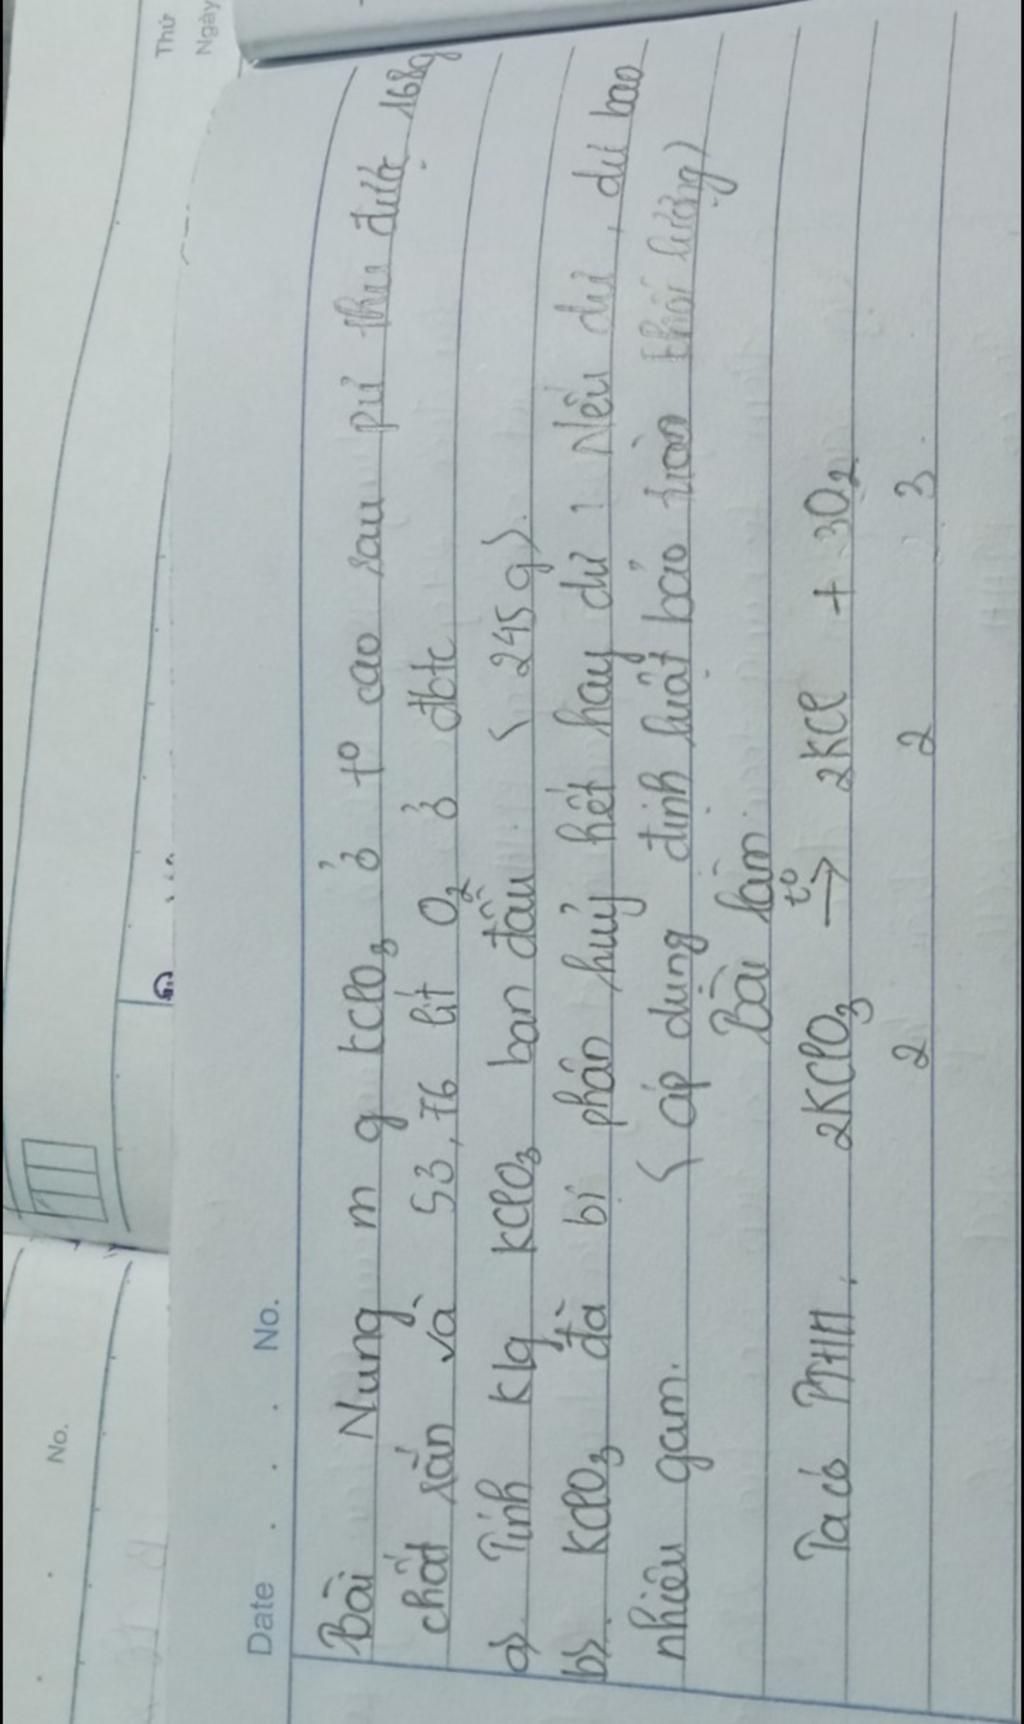 Thứ
Ngày
No.
Date No.
Bài Nung m g KClO₃ ở t° cao sau pứ thu được 168g
chất rắn và 53,76 lít O₂ ở đktc
a). Tính klg KClO₃ ban đầu. (245g).
b). KClO₃ đã bị phân huỷ hết hay dư? Nếu dư, dư bao
nhiêu gam. (áp dụng định luật bảo toàn khối lượng)
Bài làm.
Ta có PTHH. 2KClO₃ t° → 2KCl + 3O₂
2 2 3.